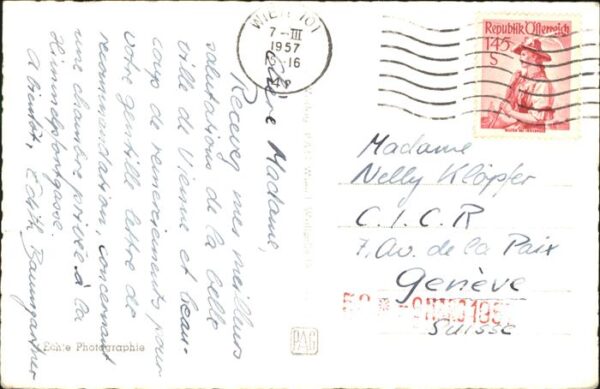 WIEN 101
7–III
1957
16
Republik Österreich
1.45
S
Chère Madame,
Recevez mes meilleurs
salutations de la belle
ville de Vienne et beau-
coup de remerciements pour
votre gentille lettre de
recommandation, concernant
une chambre privée à la
Himmelpfortgasse.
A bientôt, Edith Baumgartner
Madame
Nelly Klöpfer
C.I.C.R
7. Av. de la Paix
Genève
Suisse
PAG
Echte Photographie